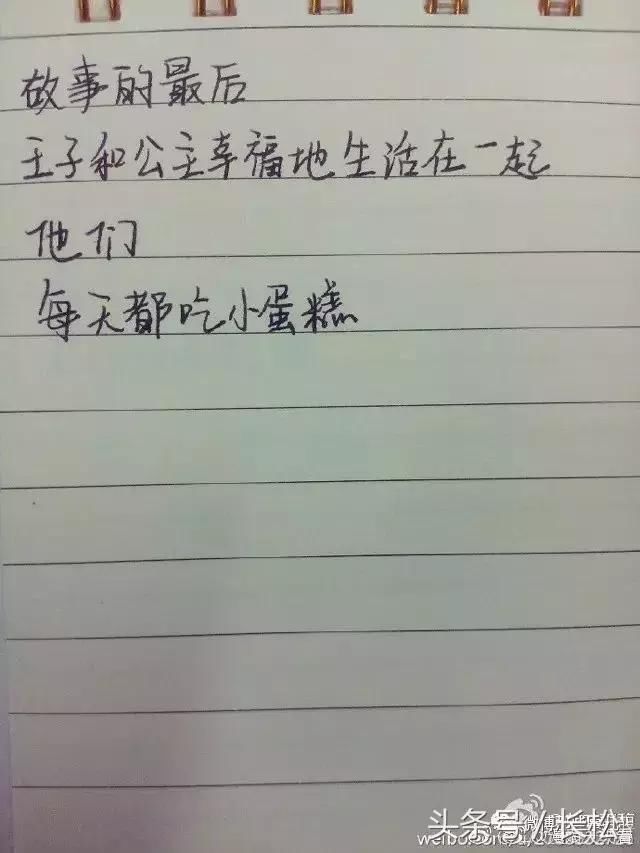 故事的最后
王子和公主幸福地生活在一起
他们
每天都吃小蛋糕
头条号/长松